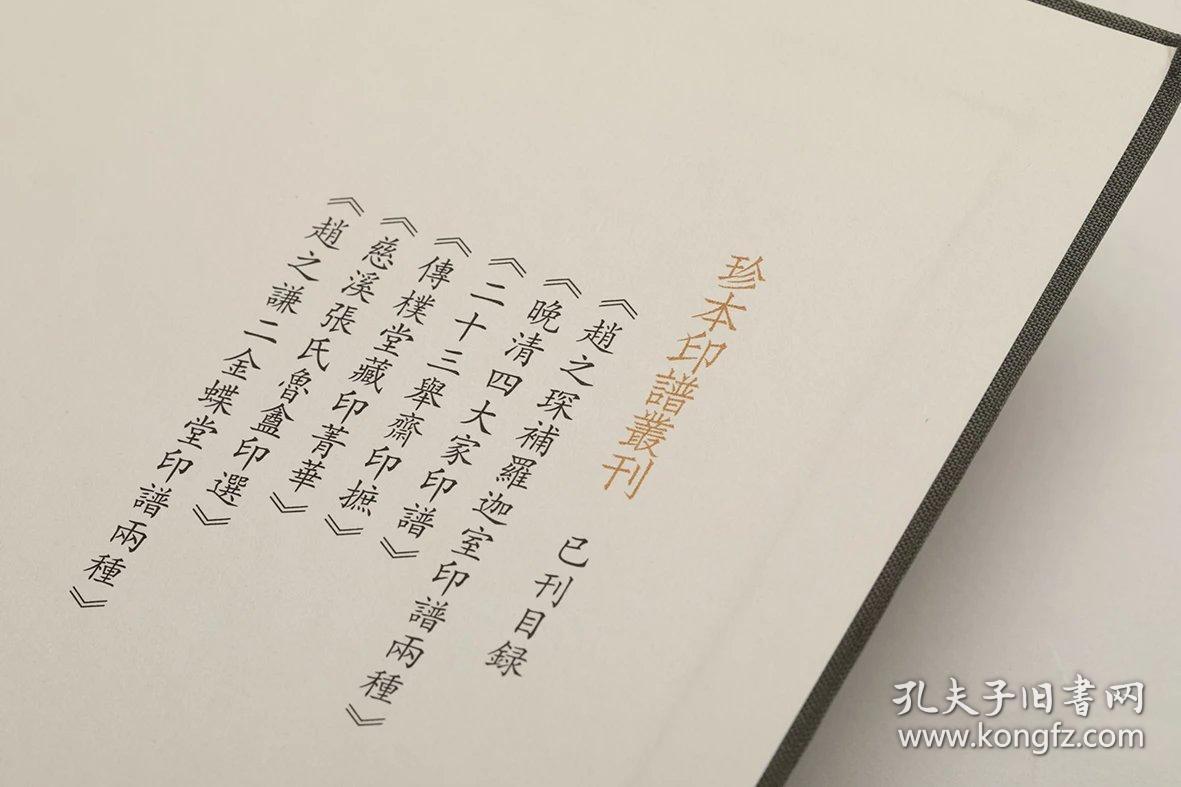 珍本印譜叢刊
已刊目録
《趙之琛補羅迦室印譜兩種》
《晚清四大家印譜》
《二十三舉齋印摭》
《傳樸堂藏印菁華》
《慈溪張氏魯盦印選》
《趙之謙二金蝶堂印譜兩種》
孔夫子旧書网
www.kongfz.com